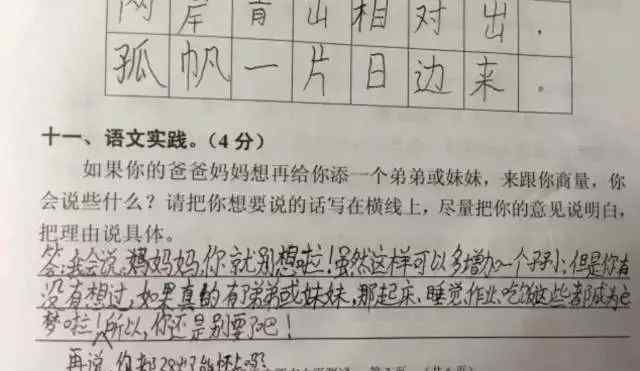 两岸青山相对出.
孤帆一片日边来。
十一、语文实践。(4分)
如果你的爸爸妈妈想再给你添一个弟弟或妹妹，来跟你商量，你
会说些什么？请把你想要说的话写在横线上，尽量把你的意见说明白，
把理由说具体。
答:我会说:妈妈,你就别想啦!虽然这样可以多增加一个 但是你有
没有想过,如果真的有了弟弟或妹妹,那起床、睡觉、作业、吃饭这些都成为
梦啦!所以,你还是别要了吧!
再说,你都